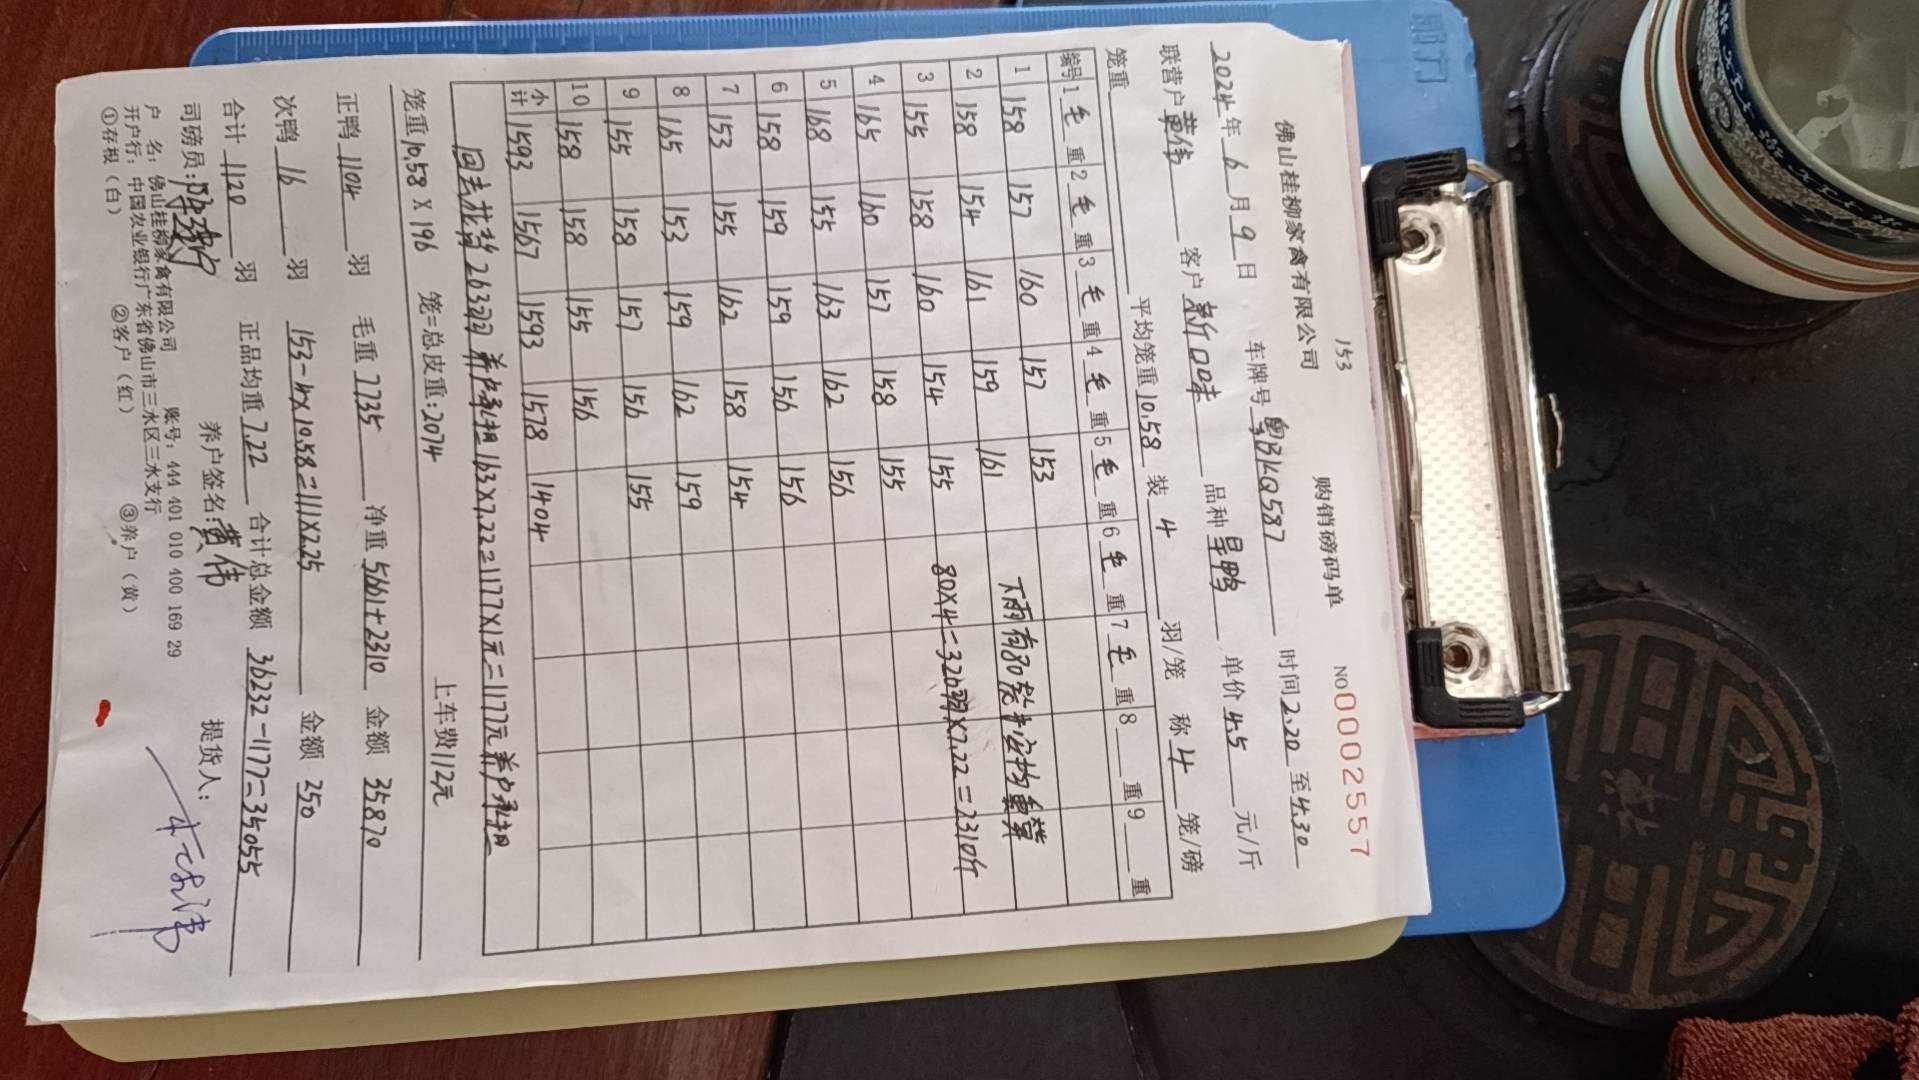 153
佛山桂柳家禽有限公司 购销磅码单 NO 0002557
2024年6月9日 车牌号 粤BKQ587 时间 2.20 至 4.30
联营户 黄伟 客户 新口味 品种 呈鸭 单价 4.5 元/斤
笼重 平均笼重 10.58 装 4 羽/笼 称 4 笼/磅
编号 1 毛 重 2 毛 重 3 毛 重 4 毛 重 5 毛 重 6 毛 重 7 毛 重 8 重 9 重
1 158 157 160 157 153
2 158 154 161 159 161 下雨有80笼未空均重算
3 155 158 160 154 155 80×4=320羽×7.22=2310斤
4 165 160 157 158 155
5 168 155 163 162 156
6 158 159 159 156 156
7 153 155 162 158 154
8 165 153 159 162 159
9 155 158 157 156 155
10 158 158 155 156
小计 1593 1567 1593 1578 1404
回去花背263羽 养户承担163×7.22=1177×1元=1177元养户承担
笼重 10.58×196 笼=总皮重:2074 上车费112元
正鸭 1104 羽 毛重 7735 净重 5661+2310 金额 35870
次鸭 16 羽 153-4×10.58=111×2.25 金额 250
合计 1120 羽 正品均重 7.22 合计总金额 36232-1177=35055
司磅员: 养户签名:黄伟 提货人:
户 名: 佛山桂柳家禽有限公司 账号: 444 401 010 400 169 29
开户行: 中国农业银行广东省佛山市三水区三水支行
①存根(白) ②客户(红) ③养户(黄)